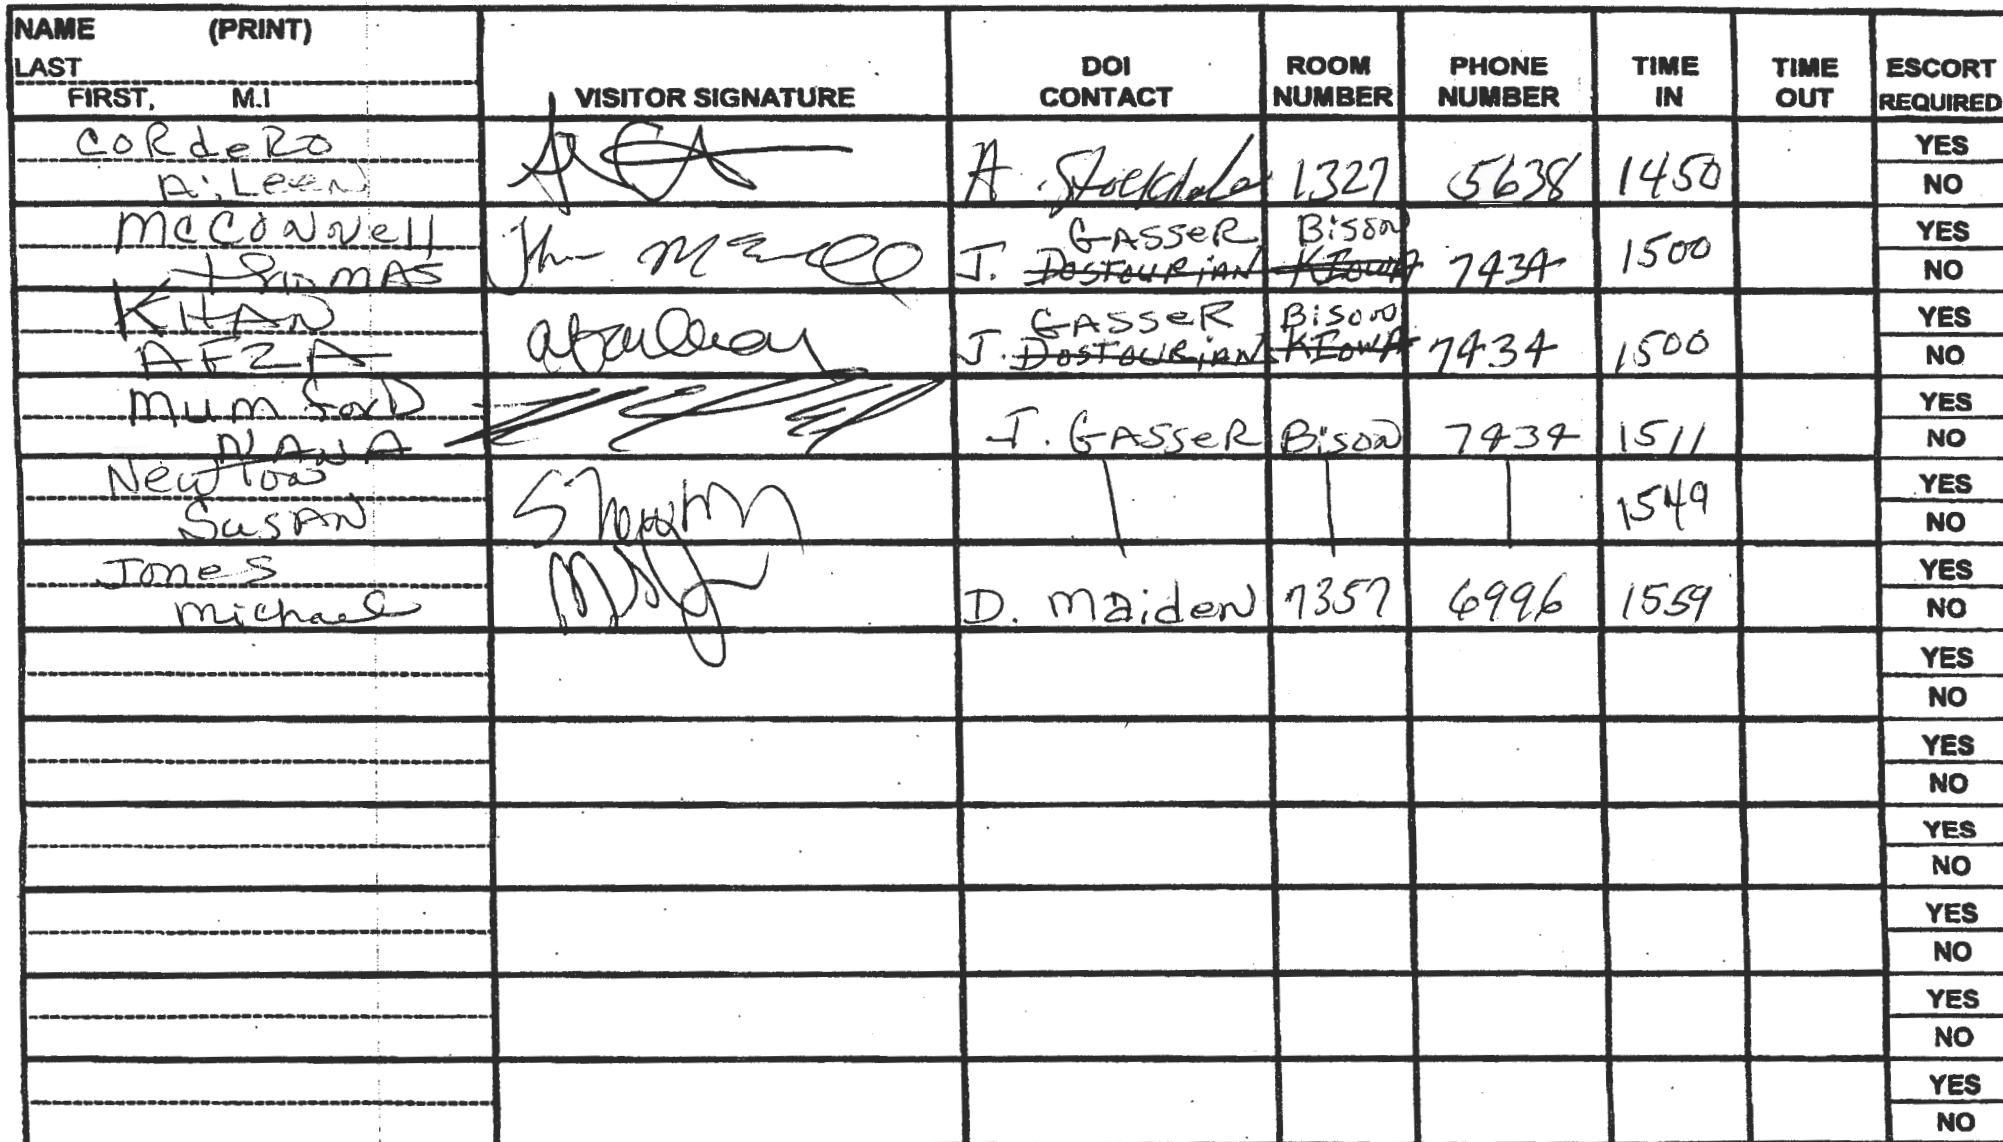 NAME (PRINT)
LAST
FIRST, M.I
VISITOR SIGNATURE
DOI CONTACT
ROOM NUMBER
PHONE NUMBER
TIME IN
TIME OUT
ESCORT REQUIRED
CORdeRO
AiLeeN
A. Stockdale 1327 5638 1450 YES NO
McCoNNell
thomAS
J. GASSeR DOSTOURiAN Bison KIOWA 7434 1500 YES NO
KHAN
AFZA
J. GASSeR DOSTOURiAN Bison KIOWA 7434 1500 YES NO
mumforD
NANA
J. GASSeR Bison 7434 1511 YES NO
Newton
SusAN
1549 YES NO
Jones
michael
D. Maiden 7357 6996 1559 YES NO
YES
NO
YES
NO
YES
NO
YES
NO
YES
NO
YES
NO